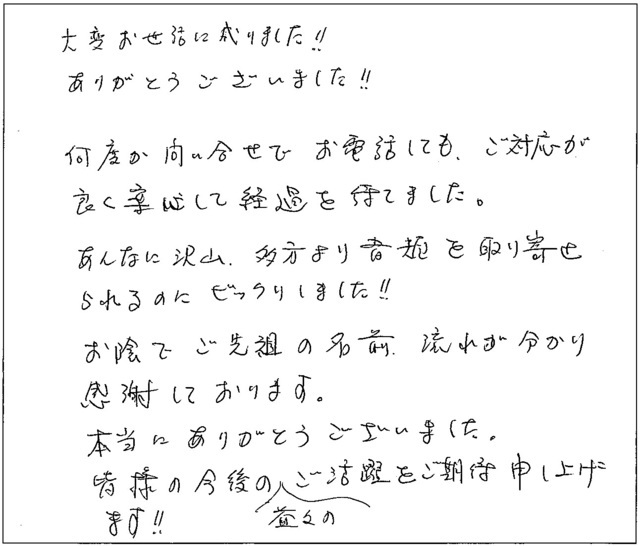 大変お世話に成りました!!
ありがとうございました!!
何度か問い合せでお電話しても、ご対応が
良く安心して経過を待てました。
あんなに沢山、多方より書類を取り寄せ
られるのにびっくりしました!!
お陰でご先祖の名前、流れが分かり
感謝しております。
本当にありがとうございました。
皆様の今後のご活躍をご期待申し上げ
益々の
ます!!